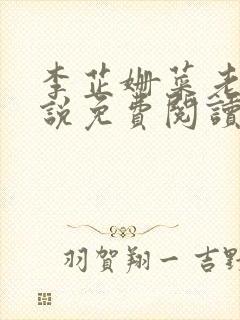 李芷姍葉老
說免費閱讀
羽賀翔一 吉野